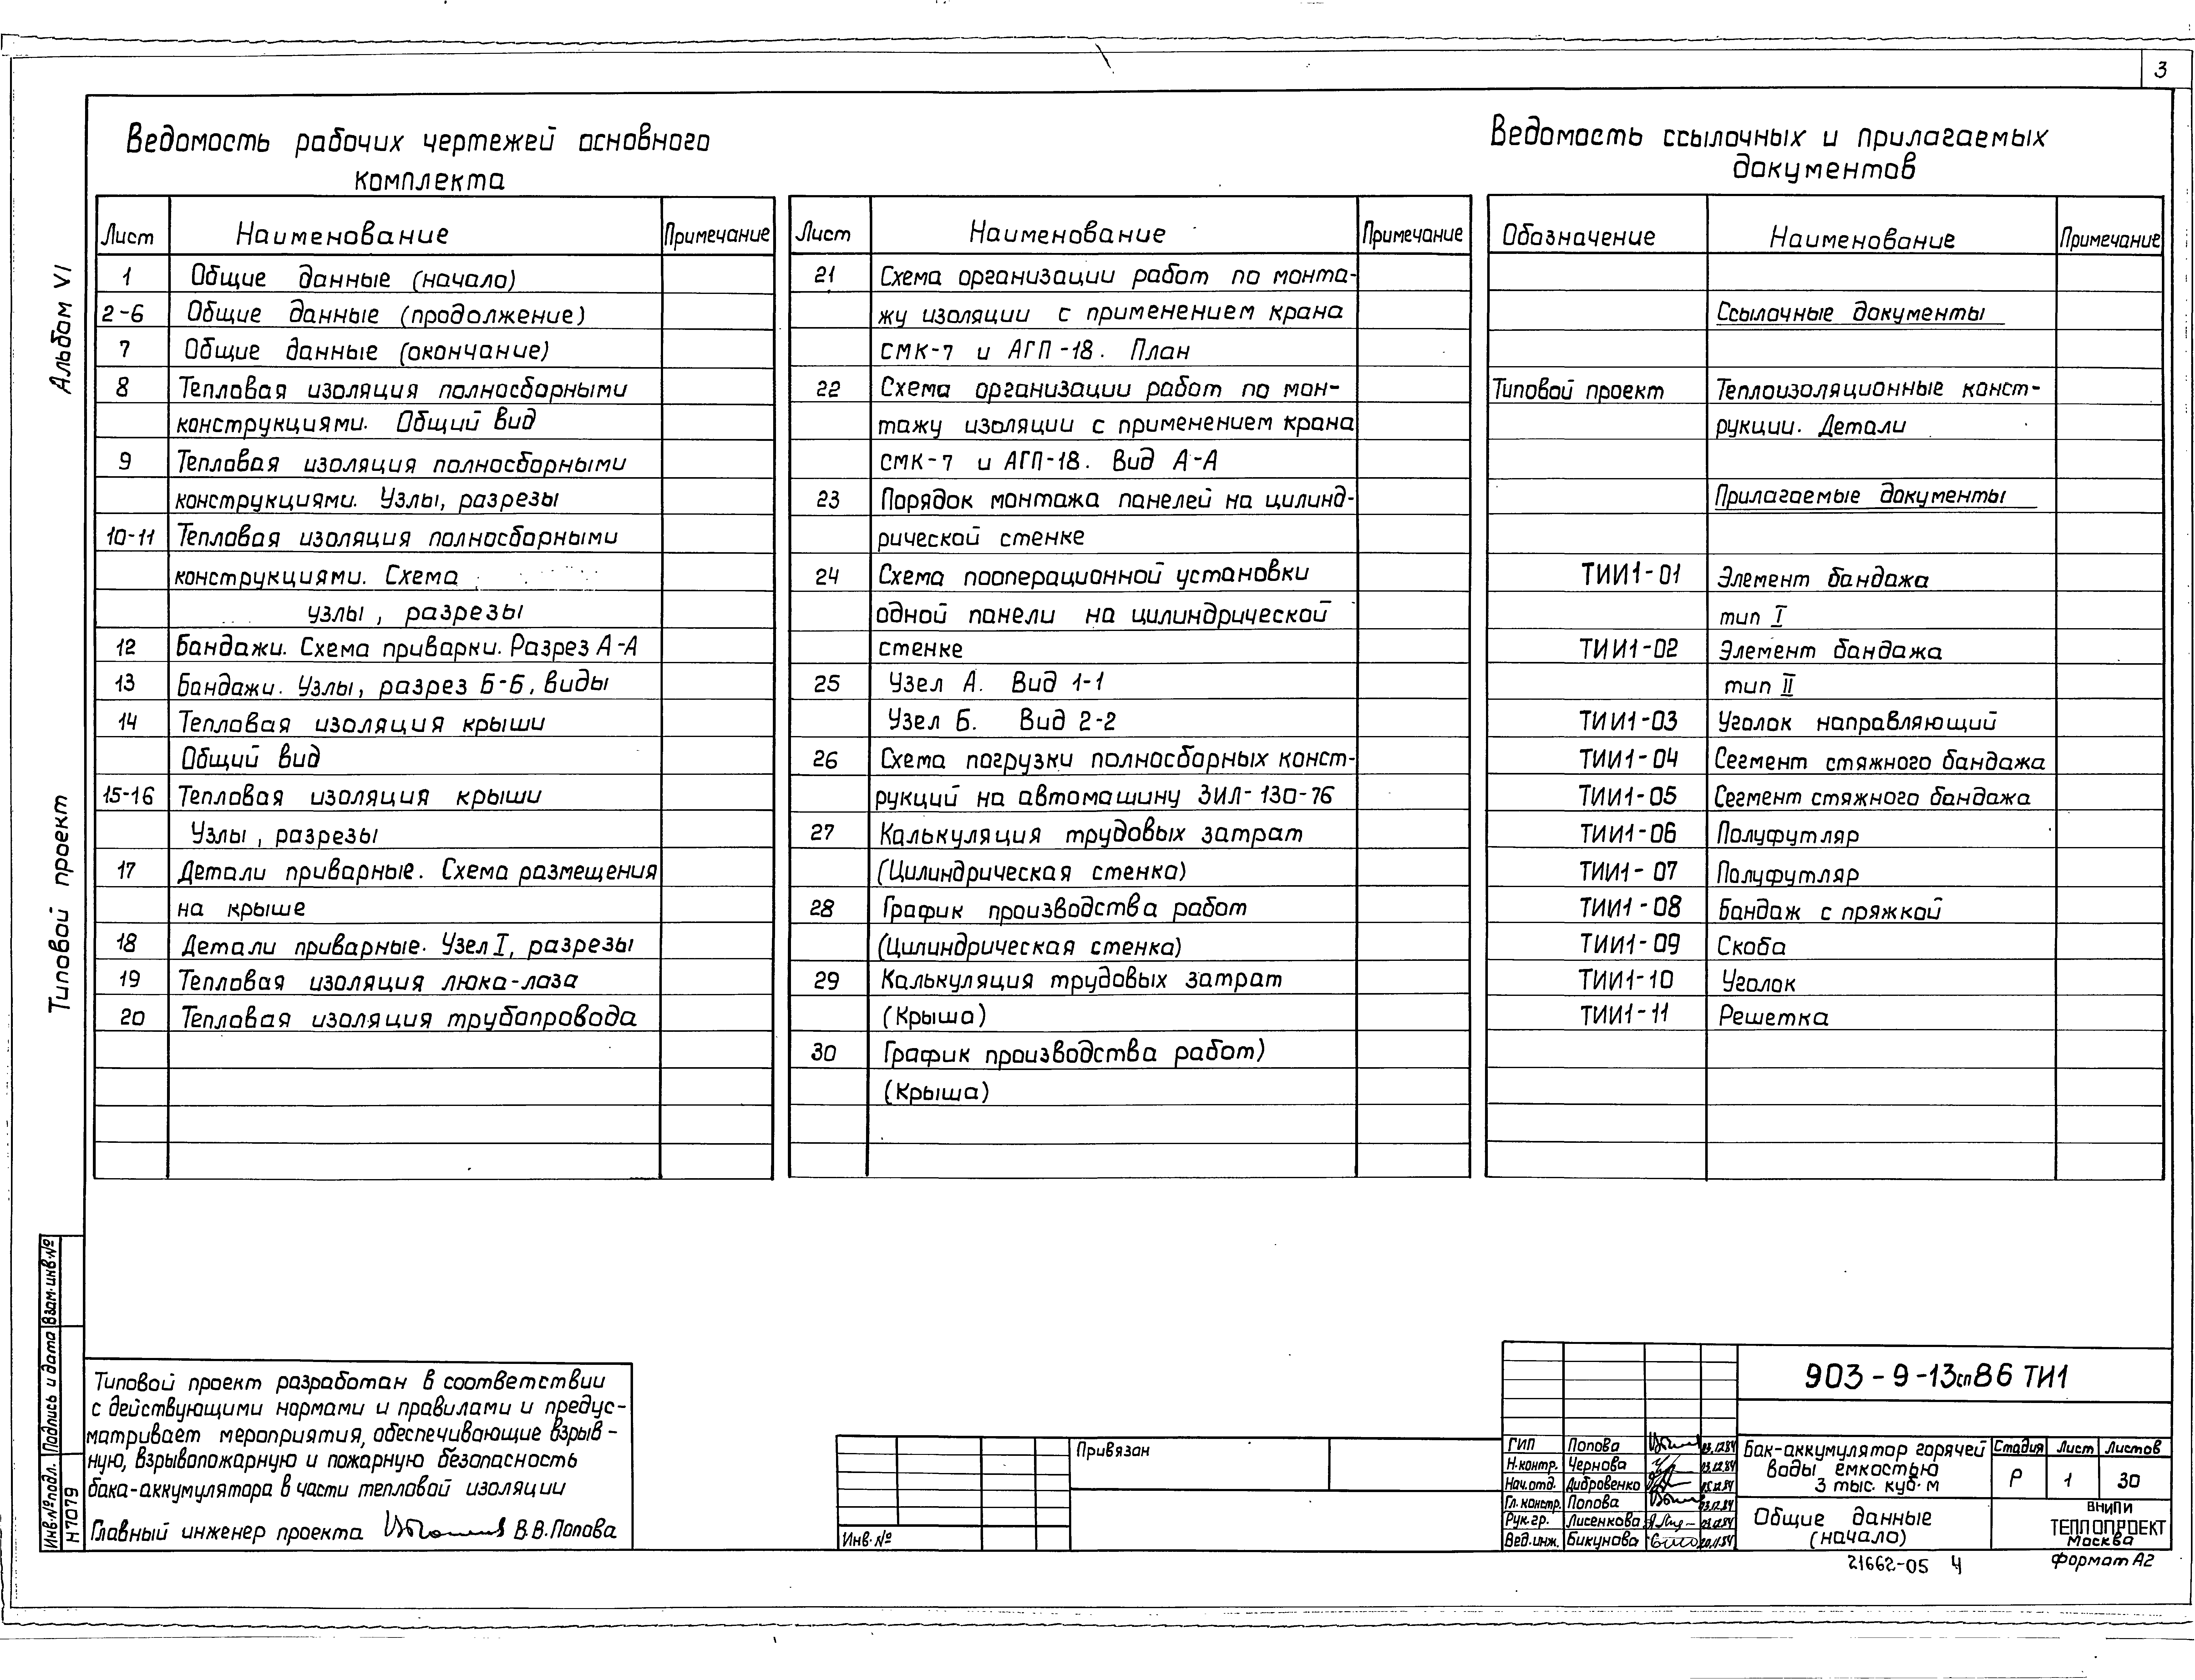 3
Альбом VI
Типовой проект
Ведомость рабочих чертежей основного
комплекта
Лист Наименование Примечание
1 Общие данные (начало)
2-6 Общие данные (продолжение)
7 Общие данные (окончание)
8 Тепловая изоляция полносборными
конструкциями. Общий вид
9 Тепловая изоляция полносборными
конструкциями. Узлы, разрезы
10-11 Тепловая изоляция полносборными
конструкциями. Схема
узлы, разрезы
12 Бандажи. Схема приварки. Разрез А-А
13 Бандажи. Узлы, разрез Б-Б, виды
14 Тепловая изоляция крыши
Общий вид
15-16 Тепловая изоляция крыши
Узлы, разрезы
17 Детали приварные. Схема размещения
на крыше
18 Детали приварные. Узел I, разрезы
19 Тепловая изоляция люка-лаза
20 Тепловая изоляция трубопровода
Лист Наименование Примечание
21 Схема организации работ по монта-
жу изоляции с применением крана
СМК-7 и АГП-18. План
22 Схема организации работ по мон-
тажу изоляции с применением крана
СМК-7 и АГП-18. Вид А-А
23 Порядок монтажа панелей на цилинд-
рической стенке
24 Схема пооперационной установки
одной панели на цилиндрической
стенке
25 Узел А. Вид 1-1
Узел Б. Вид 2-2
26 Схема погрузки полносборных конст-
рукций на автомашину ЗИЛ-130-76
27 Калькуляция трудовых затрат
(Цилиндрическая стенка)
28 График производства работ
(Цилиндрическая стенка)
29 Калькуляция трудовых затрат
(Крыша)
30 График производства работ)
(Крыша)
Ведомость ссылочных и прилагаемых
документов
Обозначение Наименование Примечание
Ссылочные документы
Типовой проект Теплоизоляционные конст-
рукции. Детали
Прилагаемые документы
ТИИ1-01 Элемент бандажа
тип I
ТИИ1-02 Элемент бандажа
тип II
ТИИ1-03 Уголок направляющий
ТИИ1-04 Сегмент стяжного бандажа
ТИИ1-05 Сегмент стяжного бандажа
ТИИ1-06 Полуфутляр
ТИИ1-07 Полуфутляр
ТИИ1-08 Бандаж с пряжкой
ТИИ1-09 Скоба
ТИИ1-10 Уголок
ТИИ1-11 Решетка
Взам. инв. №
Подпись и дата
Инв. № подл.
Н7079
Типовой проект разработан в соответствии
с действующими нормами и правилами и предус-
матривает мероприятия, обеспечивающие взрыв-
ную, взрывопожарную и пожарную безопасность
бака-аккумулятора в части тепловой изоляции
Главный инженер проекта В.В.Попова
Привязан
Инв. №
903-9-13сп86 ТИ1
ГИП Попова 03.12.84
Н.контр. Чернова 03.12.84
Нач.отд. Дибровенко 05.12.84
Гл.констр. Попова 03.12.84
Рук.гр. Лисенкова
Вед.инж. Бикунова 20.11.84
Бак-аккумулятор горячей
воды емкостью
3 тыс. куб. м
Стадия Лист Листов
Р 1 30
Общие данные
(начало)
ВНИПИ
ТЕПЛОПРОЕКТ
Москва
21662-05 4
Формат А2